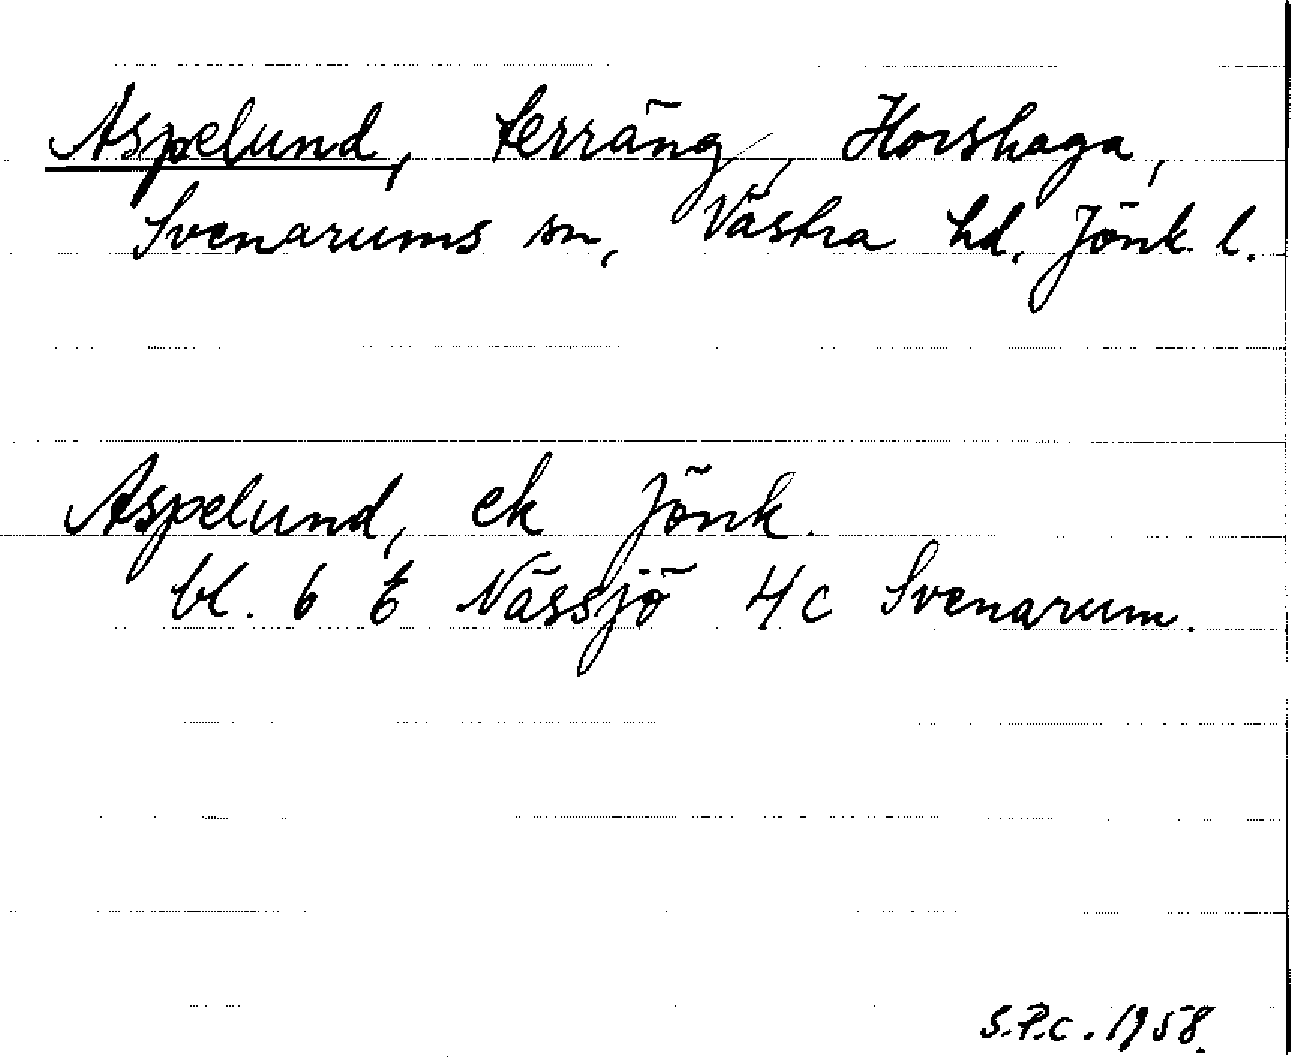 Aspelund, terräng, Horshaga,
Svenarums sn, Västra hd. Jönk l.
Aspelund, ek Jönk.
bl. 6 E Nässjö 4c Svenarum.
S.P.C. 1958.